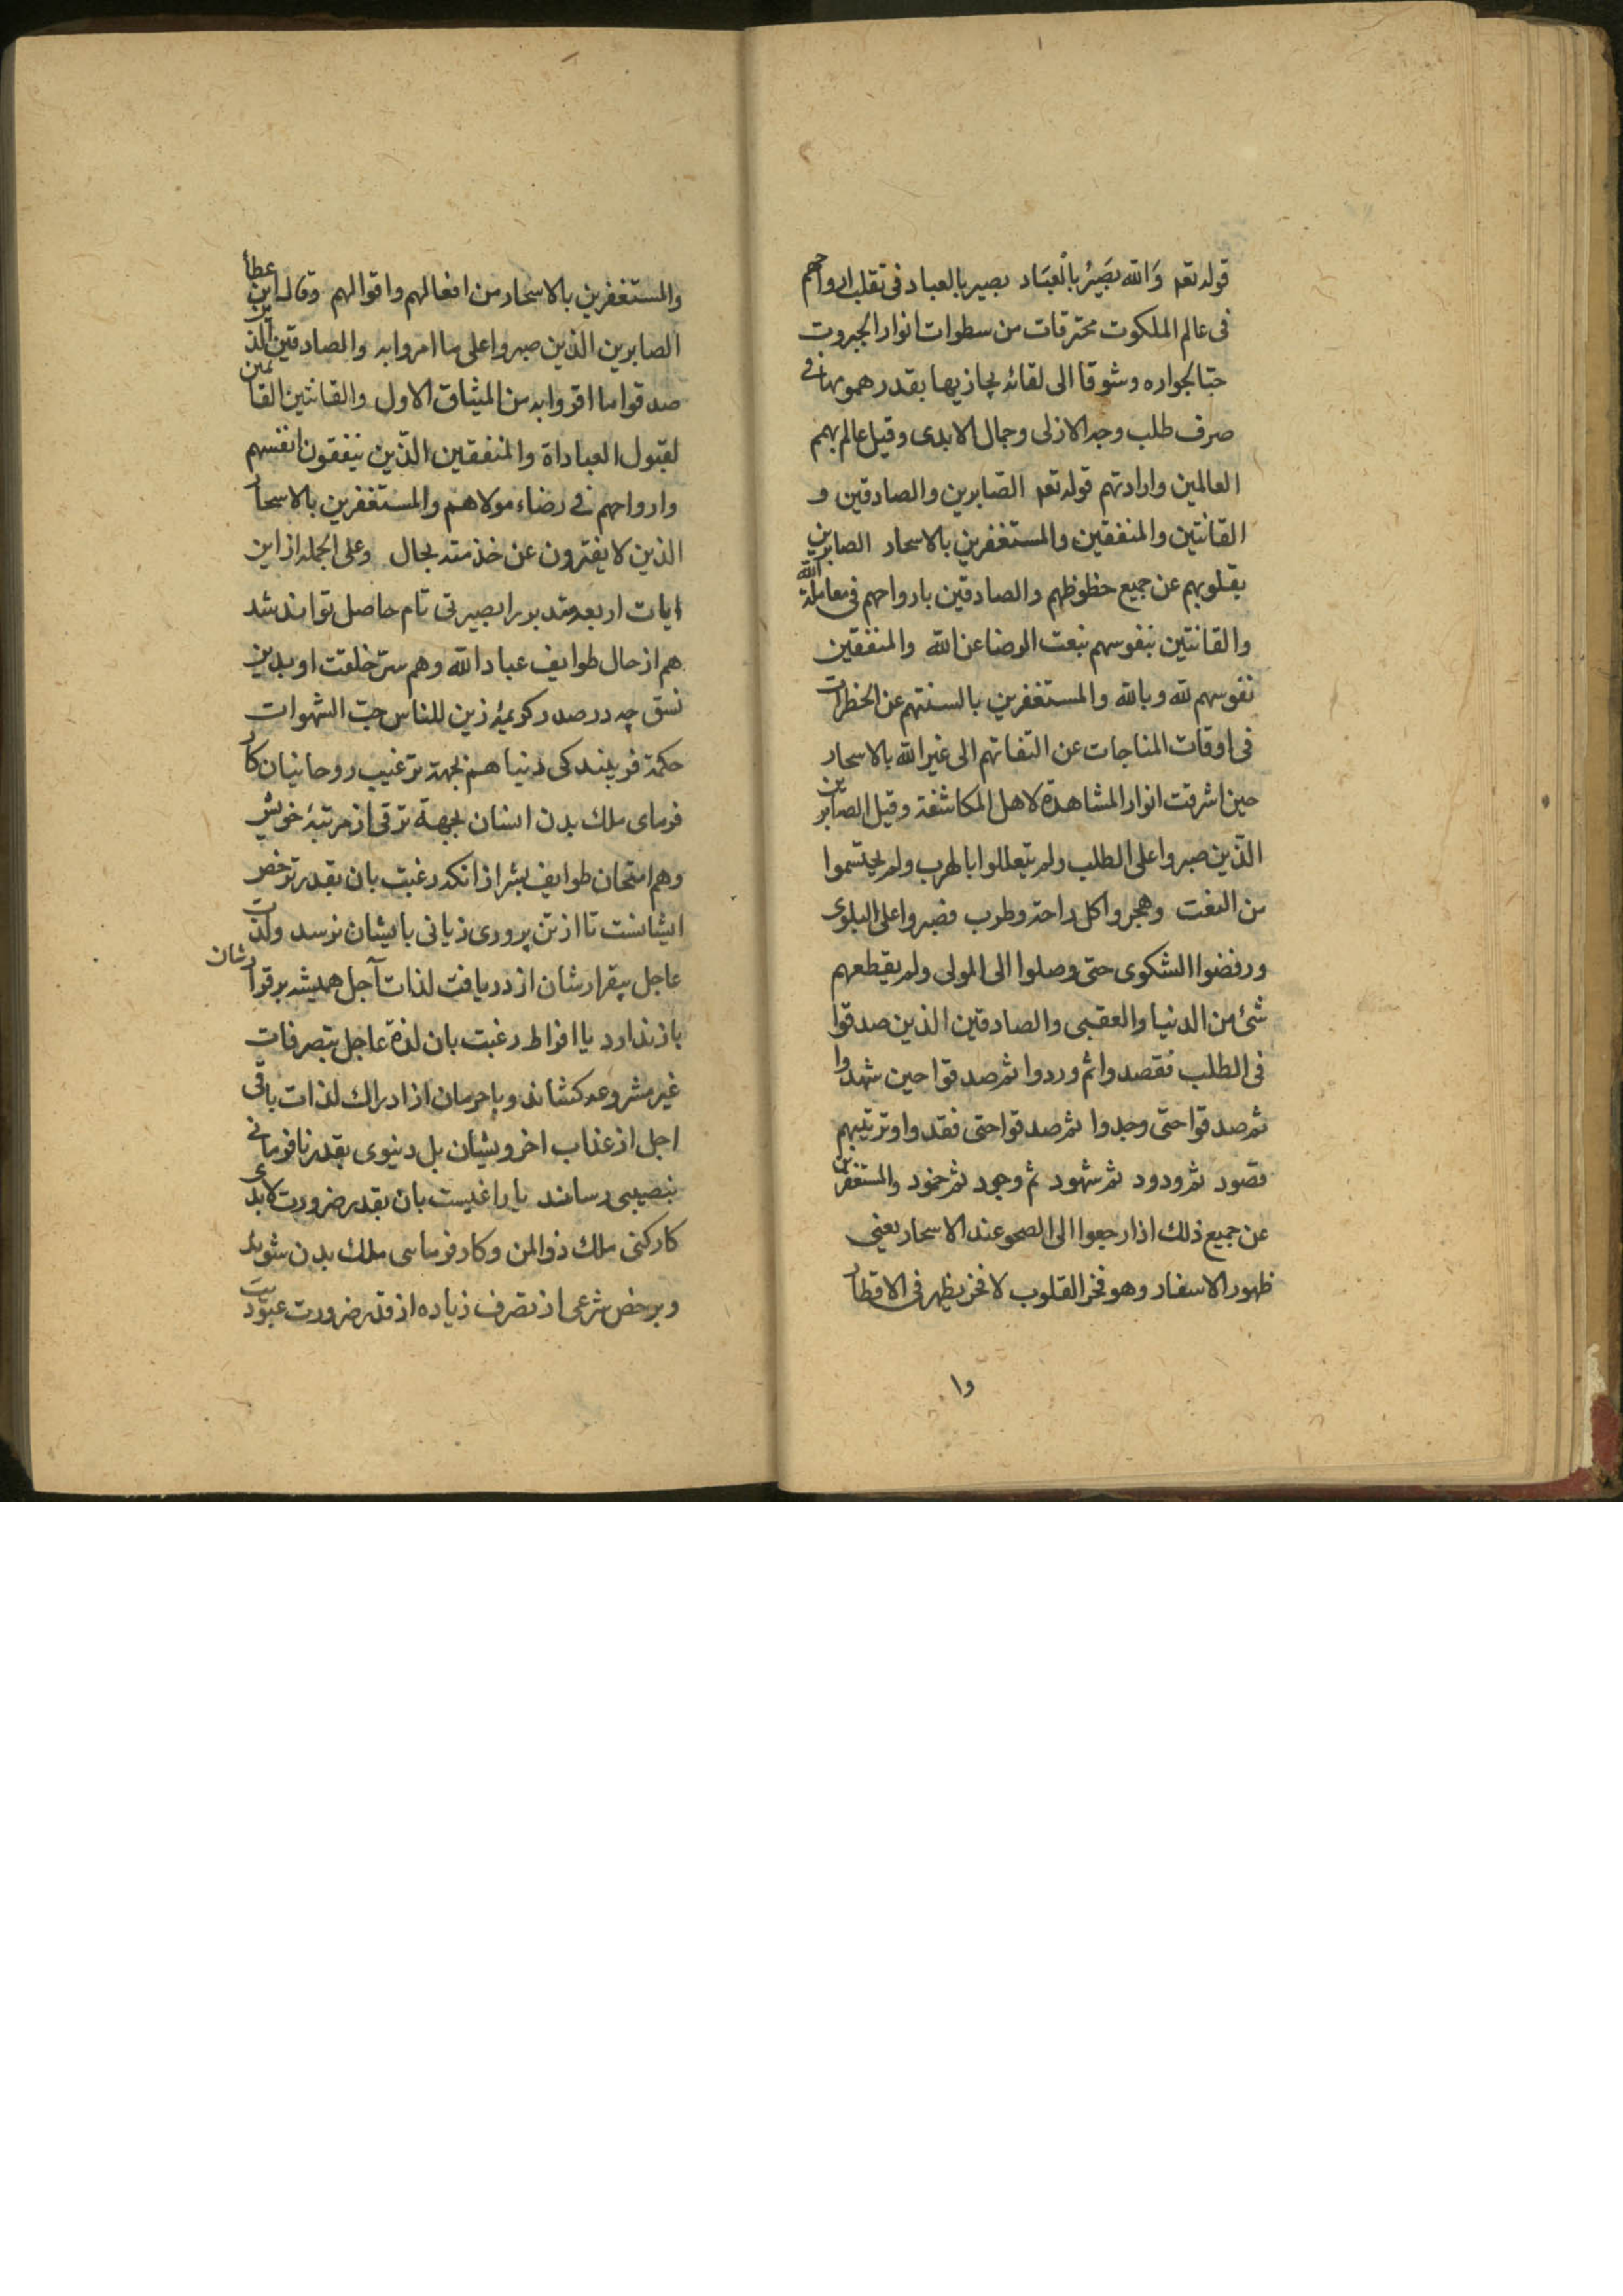 قوله تعه وَالله بصَيِرُ بالْعبَاد بصير بالعباد فى تقلب ارواحهم
فى عالم الملكوت محترقات من سطوات انوار الجبروت
حبا لجواره وشوقا الى لقائه يجازيها بقدر همومها فى
صرف طلب وجه الازلى وجمال الابدى وقيل عالم بهمم
العالمين وارادتهم قوله تعه الصّابرين والصادقين و
القانتين والمنفقين والمستغفرين بالاسحار الصابرين
بقلوبهم عن جميع حظوظهم والصادقين بارواحهم فى معاملة الله
والقانتين بنفوسهم بنعت الرضا عن الله والمنفقين
نفوسهم لله وبالله والمستغفرين بالسنتهم عن الخطرات
فى اوقات المناجات عن التفاتهم الى غير الله بالاسحار
حين اشرقت انوار المشاهدة لاهل المكاشفة وقيل الصابرين
الذّين صبروا على الطلب ولم يتعللوا بالهرب ولم يحتشموا
من التعب وهجروا كل راحة وطرب فصبروا على البلوى
ورفضوا الشكوى حتى وصلوا الى المولى ولم يقطعهم
شئ من الدنيا والعقبى والصادقين الذين صدقوا
فى الطلب فقصدوا ثم وردوا ثم صدقوا حين شهدوا
ثم صدقوا حتى وجدوا ثم صدقوا حتى فقدوا وترتيبهم
قصود ثم ورود ثم شهود ثم وجود ثم خمود والمستغفرين
عن جميع ذلك اذا رجعوا الى الصحو عند الاسحار يعني
ظهور الاسفار وهو فجر القلوب لا فجر يظهر فى الاقطار
وا
والمستغفرين بالاسحار من افعالهم واقوالهم وقال ابن عطأ
الصابرين الذين صبروا على ما امروا به والصادقين الذين
صدقوا ما اقروا به من الميثاق الاول والقانتين القائمين
لقبول العباداة والمنفقين الذّين ينفقون انفسهم
وارواحهم فى رضاء مولاهم والمستغفرين بالاسحار
الذين لا يفترون عن خذمته بحال وعلى الجمله از اين
ايات اربعه متدبر را بصيرتى تام حاصل تواند شد
هم از حال طوايف عباد الله وهم سرّ خلقت او بدين
نسق چه در صدر كريمۀ زين للناس حبّ الشهوات
حكمة فريبندكى دنيا هم بجهة ترغيب روحانيان كار
فرماى ملك بدن انسان بجهة ترقى از مرتبۀ خويش
وهم امتحان طوايف بشر از انكه رغبت بان بقدر ترخص
ايشانست تا از تن پرورى زيانى بايشان نرسد ولذت
عاجل بيقرارشان از دريافت لذات آجل هميشه برقرارشان
باز ندارد يا افراط رغبت بان لذة عاجل بتصرفات
غير مشروعه كشاند وباحرمان از ادراك لذات باقى
اجل از عذاب اخرويشان بل دنيوى بقدر نافرمانى
بنصيبى رسانند يا راغبست بان بقدر ضرورت لابدى
كاركنى ملك ذوالمن وكارفرماسى ملك بدن شويد
وبرخص شرعى از تصرف زياده از قدر ضرورت عبوديت